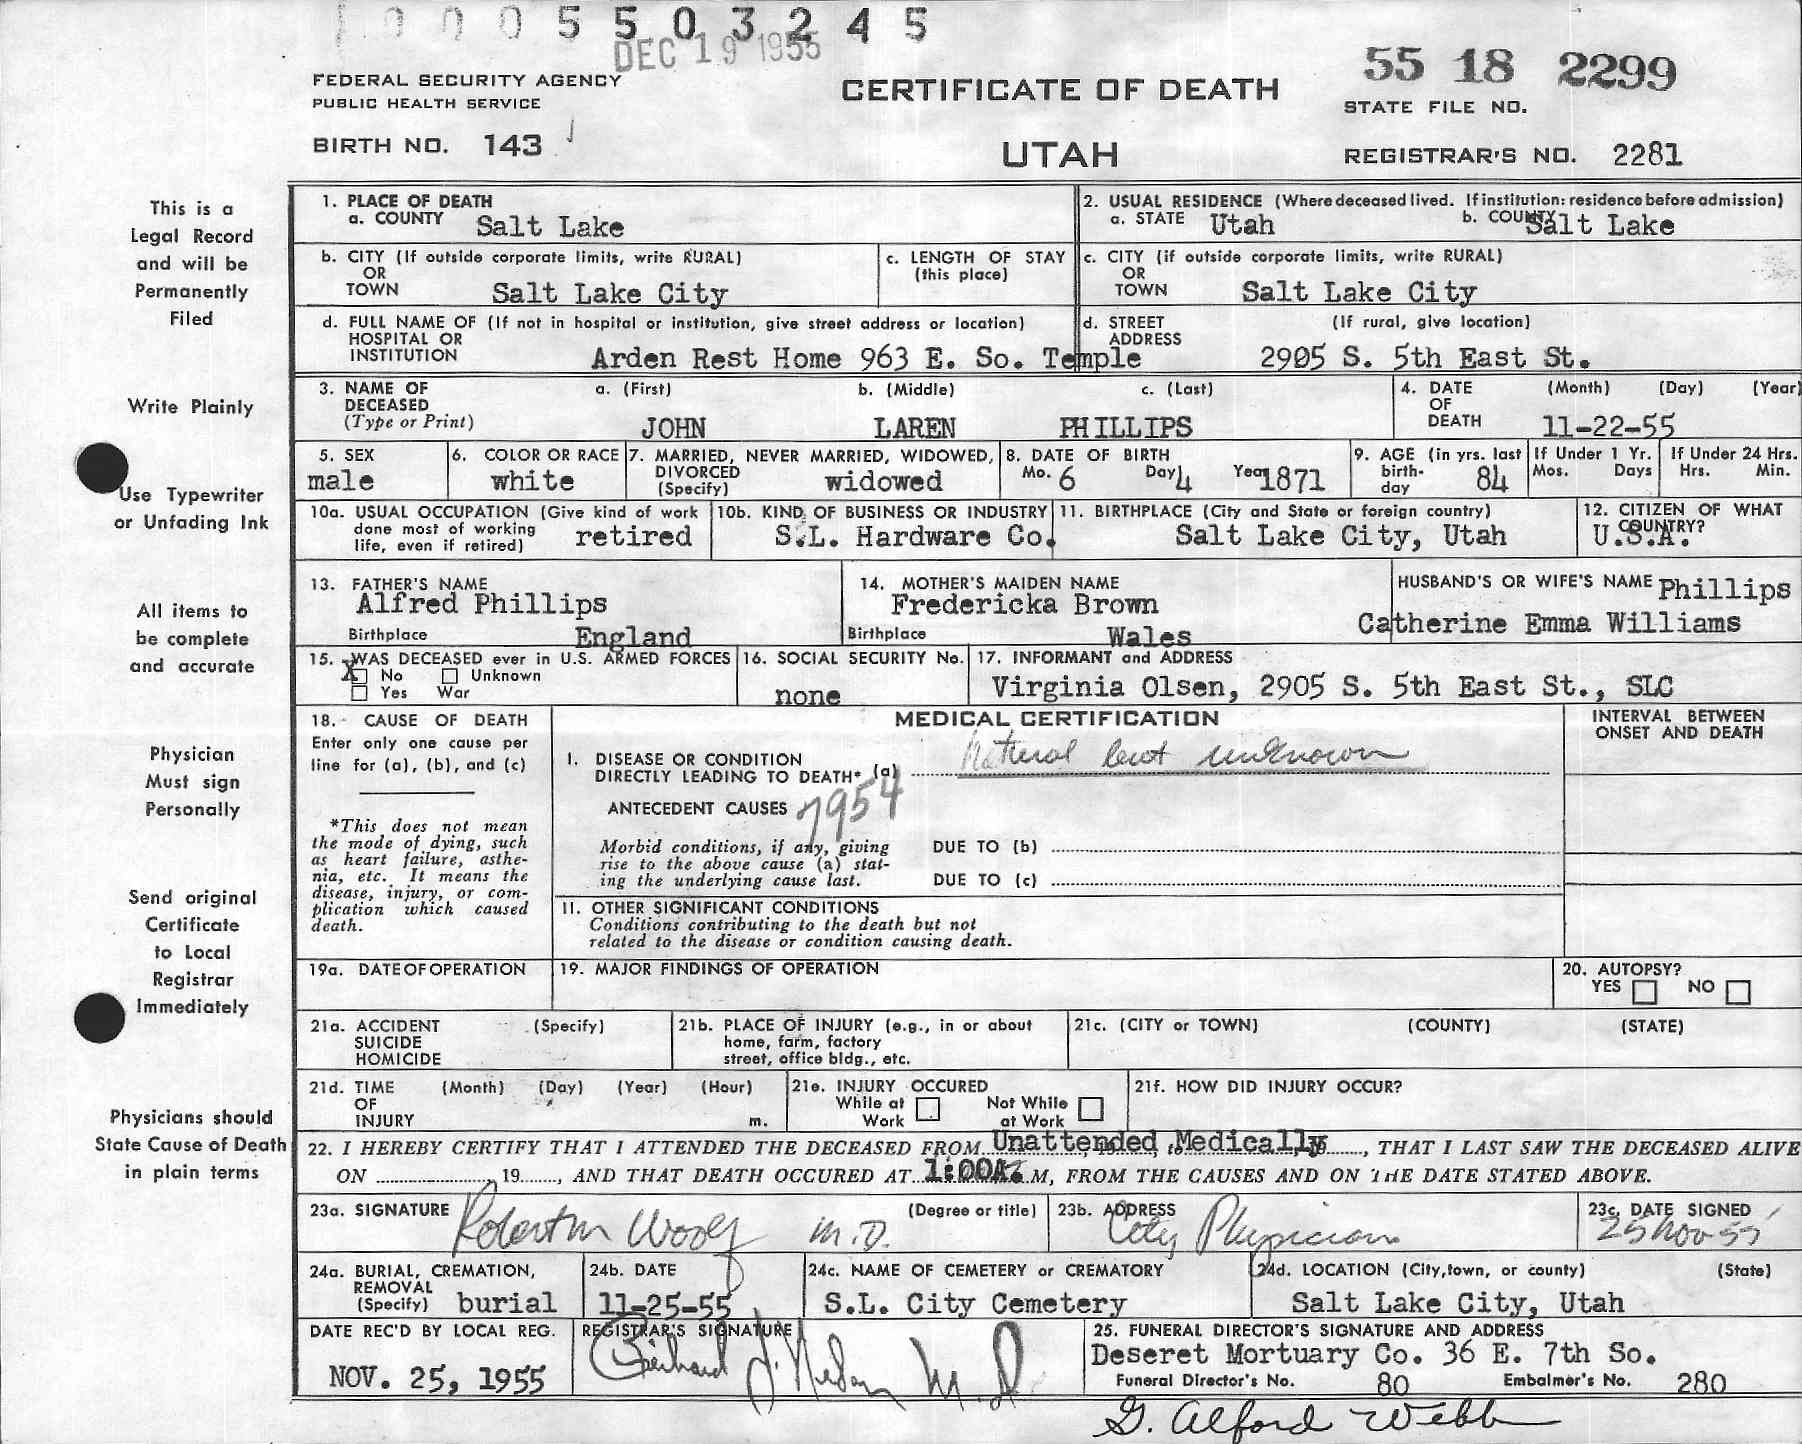 0 0 0 5 5 0 3 2 4 5
DEC 19 1955
55 18 2299
FEDERAL SECURITY AGENCY
PUBLIC HEALTH SERVICE
CERTIFICATE OF DEATH
STATE FILE NO.
BIRTH NO. 143
UTAH
REGISTRAR'S NO. 2281
This is a
Legal Record
and will be
Permanently
Filed
Write Plainly
Use Typewriter
or Unfading Ink
All items to
be complete
and accurate
Physician
Must sign
Personally
Send original
Certificate
to Local
Registrar
Immediately
Physicians should
State Cause of Death
in plain terms
1. PLACE OF DEATH
a. COUNTY Salt Lake
2. USUAL RESIDENCE (Where deceased lived. If institution: residence before admission)
a. STATE Utah b. COUNTY Salt Lake
b. CITY (If outside corporate limits, write RURAL)
OR
TOWN Salt Lake City
c. LENGTH OF STAY
(this place)
c. CITY (if outside corporate limits, write RURAL)
OR
TOWN Salt Lake City
d. FULL NAME OF (If not in hospital or institution, give street address or location)
HOSPITAL OR
INSTITUTION Arden Rest Home 963 E. So. Temple
d. STREET (If rural, give location)
ADDRESS
2905 S. 5th East St.
3. NAME OF a. (First) b. (Middle) c. (Last)
DECEASED
(Type or Print) JOHN LAREN PHILLIPS
4. DATE (Month) (Day) (Year)
OF
DEATH 11-22-55
5. SEX
male
6. COLOR OR RACE
white
7. MARRIED, NEVER MARRIED, WIDOWED,
DIVORCED
(Specify) widowed
8. DATE OF BIRTH
Mo. 6 Day 4 Year 1871
9. AGE (in yrs. last
birth-
day 84
If Under 1 Yr.
Mos. Days
If Under 24 Hrs.
Hrs. Min.
10a. USUAL OCCUPATION (Give kind of work
done most of working
life, even if retired) retired
10b. KIND OF BUSINESS OR INDUSTRY
S.L. Hardware Co.
11. BIRTHPLACE (City and State or foreign country)
Salt Lake City, Utah
12. CITIZEN OF WHAT
COUNTRY?
U.S.A.
13. FATHER'S NAME
Alfred Phillips
Birthplace England
14. MOTHER'S MAIDEN NAME
Fredericka Brown
Birthplace Wales
HUSBAND'S OR WIFE'S NAME Phillips
Catherine Emma Williams
15. WAS DECEASED ever in U.S. ARMED FORCES
X No Unknown
Yes War
16. SOCIAL SECURITY No.
none
17. INFORMANT and ADDRESS
Virginia Olsen, 2905 S. 5th East St., SLC
18. CAUSE OF DEATH
Enter only one cause per
line for (a), (b), and (c)
*This does not mean
the mode of dying, such
as heart failure, asthe-
nia, etc. It means the
disease, injury, or com-
plication which caused
death.
MEDICAL CERTIFICATION
I. DISEASE OR CONDITION
DIRECTLY LEADING TO DEATH* (a) Natural but unknown
ANTECEDENT CAUSES 7954
Morbid conditions, if any, giving
rise to the above cause (a) stat-
ing the underlying cause last.
DUE TO (b)
DUE TO (c)
11. OTHER SIGNIFICANT CONDITIONS
Conditions contributing to the death but not
related to the disease or condition causing death.
INTERVAL BETWEEN
ONSET AND DEATH
19a. DATE OF OPERATION
19. MAJOR FINDINGS OF OPERATION
20. AUTOPSY?
YES NO
21a. ACCIDENT (Specify)
SUICIDE
HOMICIDE
21b. PLACE OF INJURY (e.g., in or about
home, farm, factory
street, office bldg., etc.
21c. (CITY or TOWN) (COUNTY) (STATE)
21d. TIME (Month) (Day) (Year) (Hour)
OF
INJURY m.
21e. INJURY OCCURED
While at Not While
Work at Work
21f. HOW DID INJURY OCCUR?
22. I HEREBY CERTIFY THAT I ATTENDED THE DECEASED FROM Unattended Medically, THAT I LAST SAW THE DECEASED ALIVE
ON , 19 , AND THAT DEATH OCCURED AT 1:00A. M, FROM THE CAUSES AND ON THE DATE STATED ABOVE.
23a. SIGNATURE (Degree or title)
Robert M Woolf M.D.
23b. ADDRESS
City Physician
23c. DATE SIGNED
25 Nov 55
24a. BURIAL, CREMATION,
REMOVAL
(Specify) burial
24b. DATE
11-25-55
24c. NAME OF CEMETERY or CREMATORY
S.L. City Cemetery
24d. LOCATION (City, town, or county) (State)
Salt Lake City, Utah
DATE REC'D BY LOCAL REG.
NOV. 25, 1955
REGISTRAR'S SIGNATURE
25. FUNERAL DIRECTOR'S SIGNATURE AND ADDRESS
Deseret Mortuary Co. 36 E. 7th So.
Funeral Director's No. 80 Embalmer's No. 280
G. Alford Webb